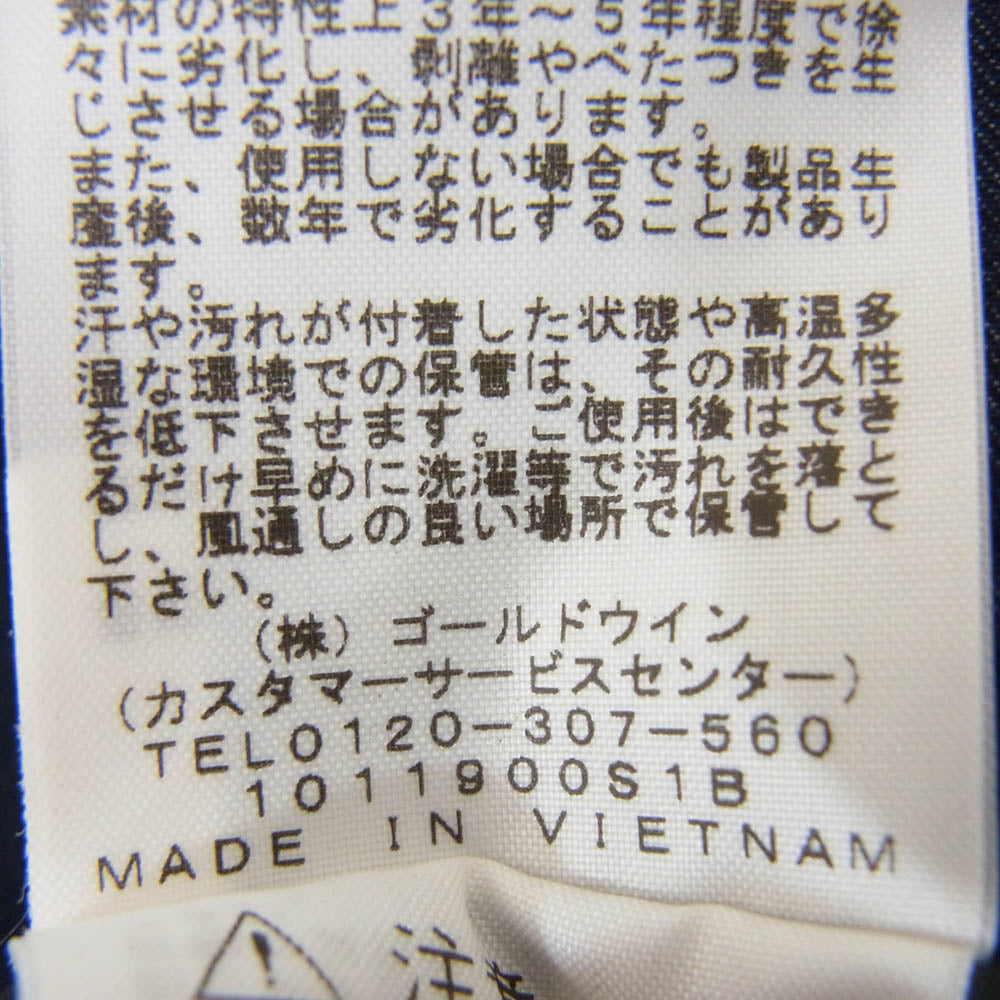 素材の特性上、3年～5年程度で徐
々に劣化し、剥離やべたつきを生
じさせる場合があります。
また、使用しない場合でも製品生
産後、数年で劣化することがあり
ます。
汗や汚れが付着した状態や高温多
湿な環境での保管は、その耐久性
を低下させます。ご使用後はできる
るだけ早めに洗濯等で汚れを落と
し、風通しの良い場所で保管して
下さい。
(株)ゴールドウイン
(カスタマーサービスセンター)
TEL0120-307-560
1011900S1B
MADE IN VIETNAM
注